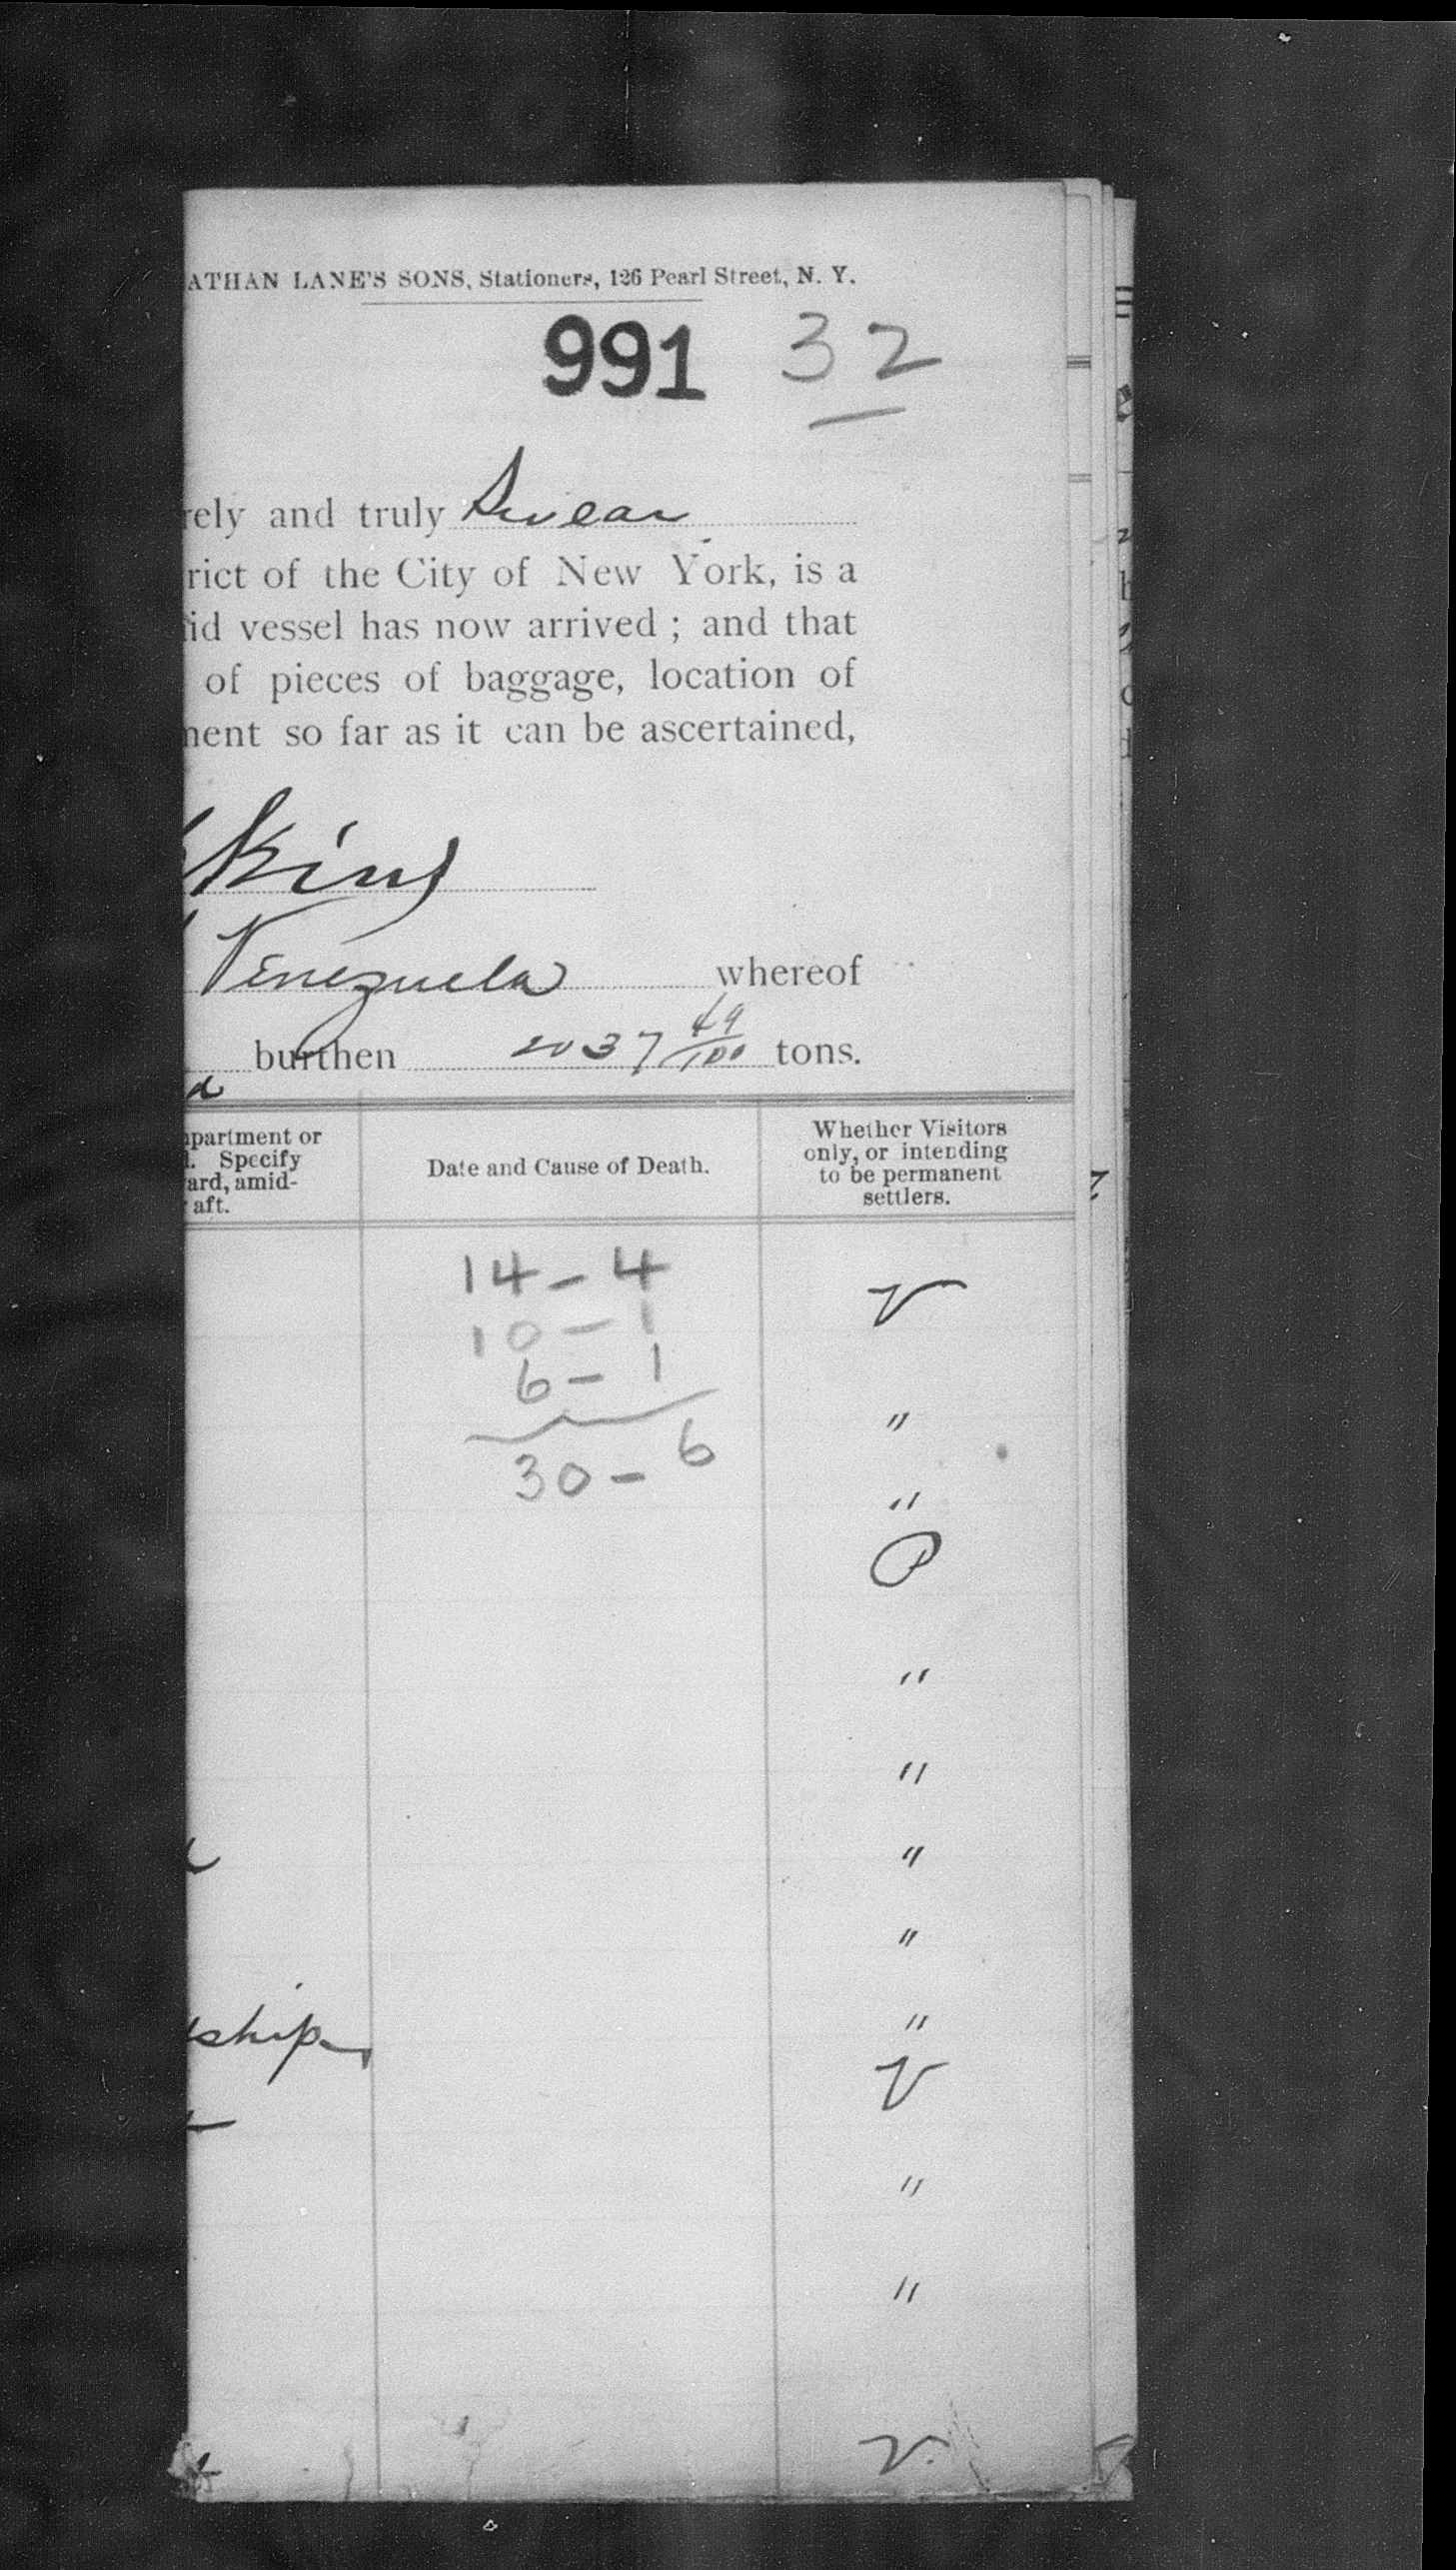 ATHAN LANE'S SONS, Stationers, 126 Pearl Street, N. Y.
991 32
rely and truly Swear
rict of the City of New York, is a
id vessel has now arrived; and that
of pieces of baggage, location of
nent so far as it can be ascertained,
kins
Venezuela whereof
burthen 2037 49/100 tons.
partment or
. Specify
ard, amid-
aft.
Date and Cause of Death.
Whether Visitors
only, or intending
to be permanent
settlers.
14 - 4
10 - 1
6 - 1
30 - 6
V
"
"
P
"
"
"
"
"
ship
V
"
"
V.